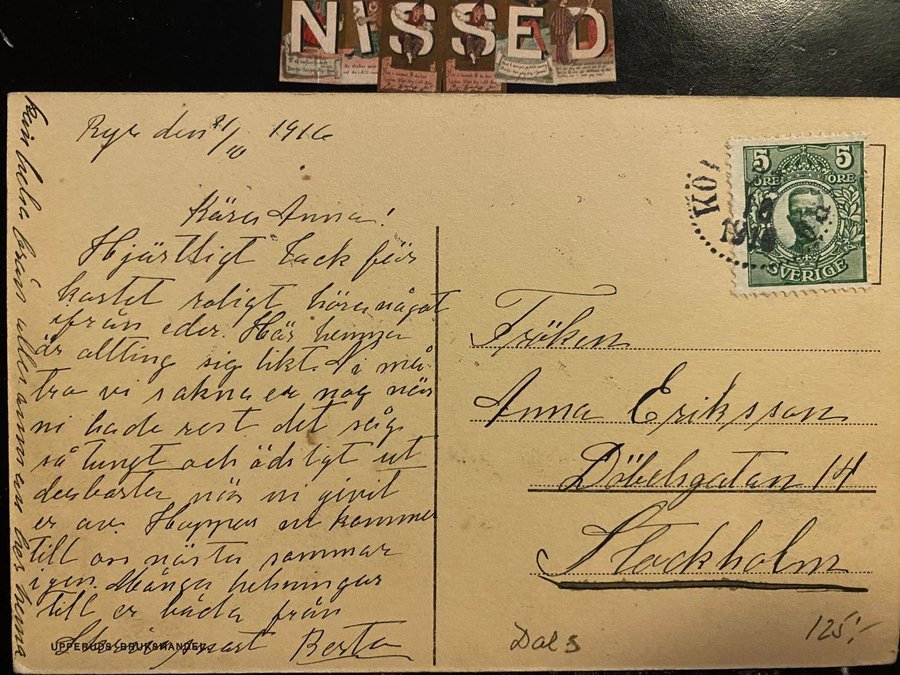 NISSED
den 21/10 1916
Kära Anna!
Hjärtligt Tack för
kortet roligt höra något
ifrån eder. Här hemma
är allting sig likt. Ni må
tro vi sakna er nog när
ni hade rest det såg
så tungt och ödsligt ut
när ni givit
er av. Hoppas ni kommer
till oss nästa sommar
igen. Många helsningar
till er båda från
Berta
UPPERUDS BRUKSHANDEL
hos hema
5 5
ÖRE ÖRE
SVERIGE
KÖ
Fröken
Anna Eriksson
Döbelsgatan 14
Stockholm
Dals
125:-